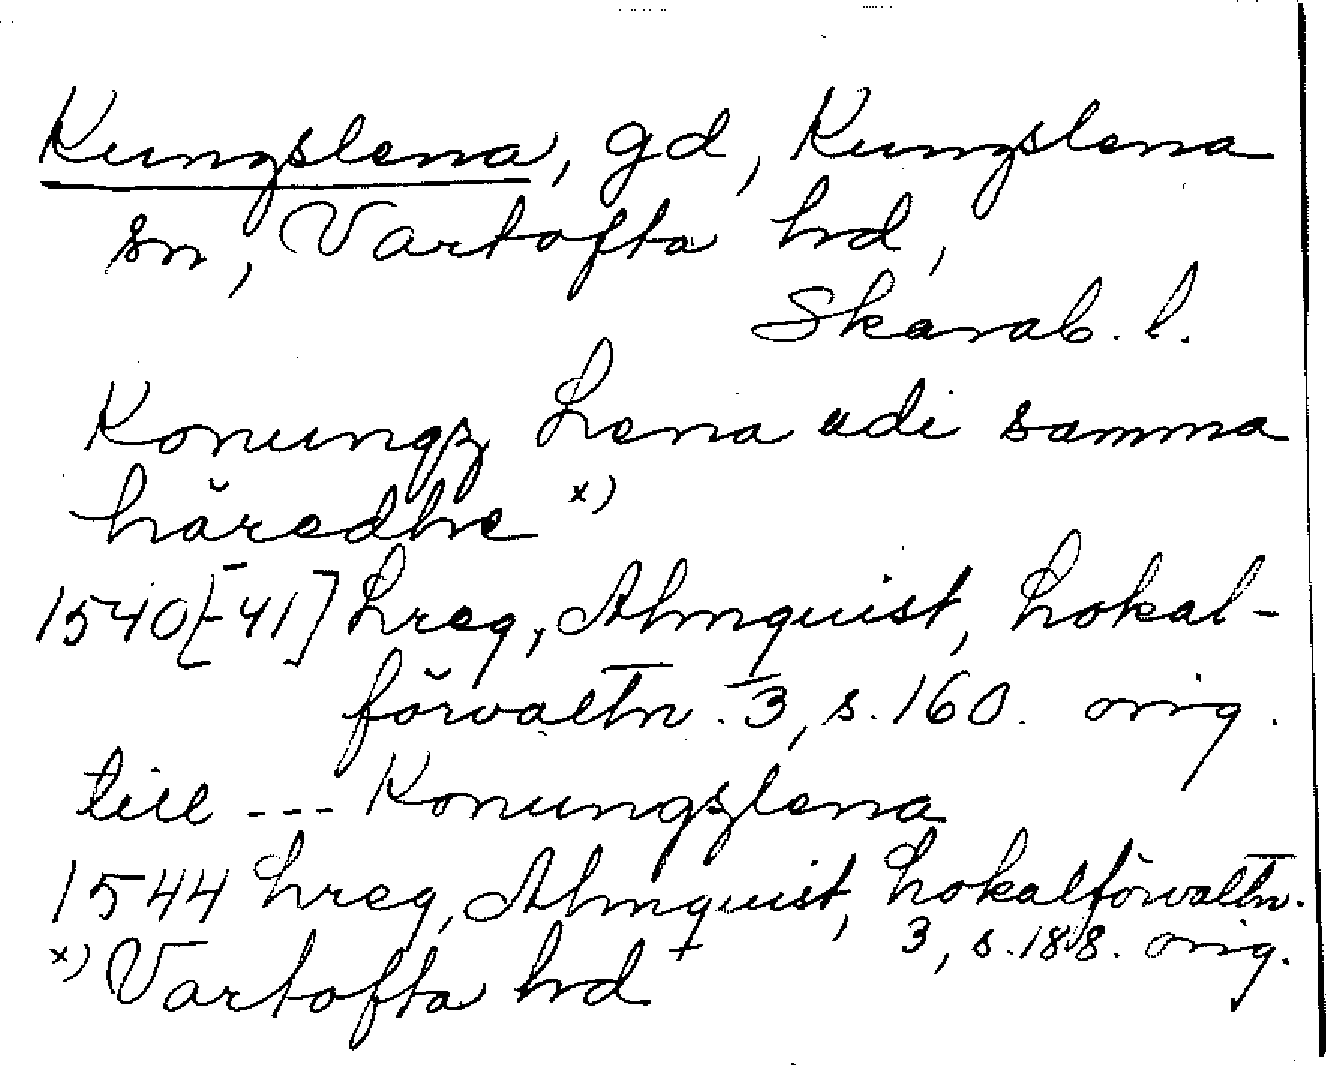 Kungslena, gd, Kungslena
sn, Vartofta hd,
Skarab. l.
Konungz Lena udi samma
häredhe x)
1540[-41] Lreg, Almquist, Lokal-
förvaltn. 3, s. 160. orig.
till --- Konungzlena
1544 Lreg, Almquist, Lokalförvaltn.
3, s. 188. orig.
x) Vartofta hd